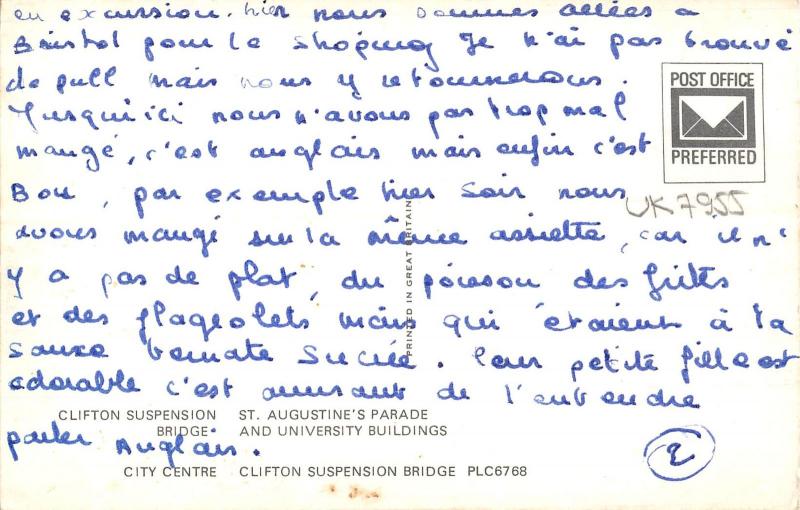 en excursion. hier nous sommes allées à
Bristol pour le shoping Je n'ai pas trouvé
de pull mais nous y retournerons.
Jusqu'ici nous n'avons pas trop mal
mangé, c'est anglais mais enfin c'est
Bon, par exemple hier soir nous
avons mangé sur la même assiette, car il n'
y a pas de plat, du poisson des frites
et des flageolets mais qui étaient à la
sauce tomate sucrée. leur petite fille est
adorable c'est amusant de l'entendre
parler Anglais.
POST OFFICE
PREFERRED
UK 7955
PRINTED IN GREAT BRITAIN
CLIFTON SUSPENSION BRIDGE
ST. AUGUSTINE'S PARADE
AND UNIVERSITY BUILDINGS
CITY CENTRE
CLIFTON SUSPENSION BRIDGE PLC6768
2